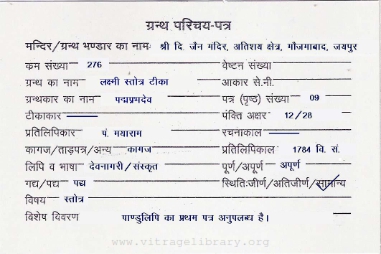 ग्रन्थ परिचय-पत्र
मन्दिर/ग्रन्थ भण्डार का नामः श्री दि. जैन मंदिर, अतिशय क्षेत्र, मौजमाबाद, जयपुर
क्रम संख्या 276 वेष्टन संख्या
ग्रन्थ का नाम लक्ष्मी स्तोत्र टीका आकार से.मी.
ग्रन्थकार का नाम पद्मप्रणदेव पत्र (पृष्ठ) संख्या 09
टीकाकार पंक्ति अक्षर 12/28
प्रतिलिपिकार पं. मयाराम रचनाकाल
कागज/ताड़पत्र/अन्य कागज प्रतिलिपिकाल 1784 वि. सं.
लिपि व भाषा देवनागरी/संस्कृत पूर्ण/अपूर्ण अपूर्ण
गद्य/पद्य पद्य स्थिति:जीर्ण/अतिजीर्ण/सामान्य
विषय स्तोत्र
विशेष विवरण पाण्डुलिपि का प्रथम पत्र अनुपलब्ध है।
www.vitragelibrary.org